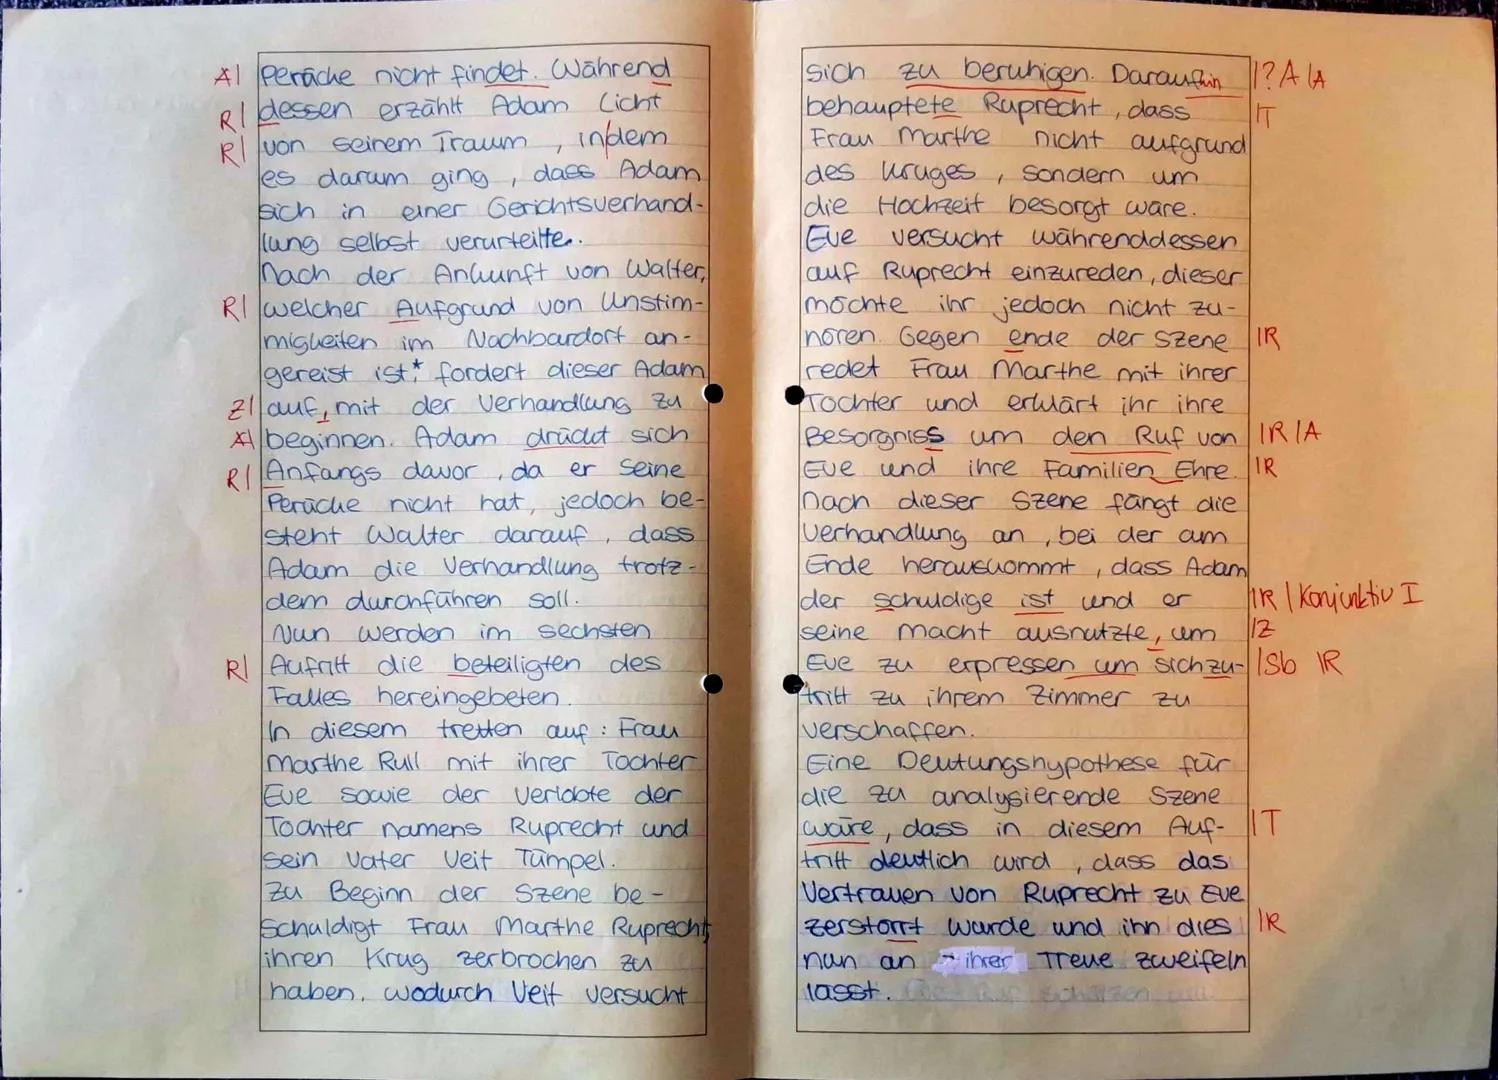 A| Perücke nicht findet. Während
R| dessen erzählt Adam Licht
R| von seinem Traum, indem
es darum ging, dass Adam
sich in einer Gerichtsverhand-
lung selbst verurteilte.
Nach der Ankunft von Walter,
R| welcher Aufgrund von Unstim-
migkeiten im Nachbardorf an-
gereist ist,* fordert dieser Adam
Z| auf, mit der Verhandlung zu
A| beginnen. Adam drückt sich
R| Anfangs davor, da er seine
Perücke nicht hat, jedoch be-
steht Walter darauf, dass
Adam die Verhandlung trotz-
dem durchführen soll.
Nun werden im sechsten
R| Auftritt die beteiligten des
Falles hereingebeten.
In diesem tretten auf: Frau
Marthe Rull mit ihrer Tochter
Eve sowie der Verlobte der
Tochter namens Ruprecht und
sein Vater Veit Tümpel.
Zu Beginn der Szene be-
schuldigt Frau Marthe Ruprecht,
ihren Krug zerbrochen zu
haben, wodurch Veit versucht
sich zu beruhigen. Daraufhin |? A |A
behauptete Ruprecht, dass |T
Frau Marthe nicht aufgrund
des Kruges, sondern um
die Hochzeit besorgt wäre.
Eve versucht währenddessen
auf Ruprecht einzureden, dieser
möchte ihr jedoch nicht zu-
hören. Gegen ende der Szene |R
redet Frau Marthe mit ihrer
Tochter und erklärt ihr ihre
Besorgniss um den Ruf von |R |A
Eve und ihre Familien Ehre. |R
Nach dieser Szene fängt die
Verhandlung an, bei der am
Ende herauskommt, dass Adam
der schuldige ist und er |R | Konjunktiv I
seine Macht ausnutzte, um |Z
Eve zu erpressen um sich zu- |Sb |R
tritt zu ihrem Zimmer zu
verschaffen.
Eine Deutungshypothese für
die zu analysierende Szene
wäre, dass in diesem Auf- |T
tritt deutlich wird, dass das
Vertrauen von Ruprecht zu Eve
zerstorrt wurde und ihn dies |R
nun an ihrer Treue zweifeln
lässt.